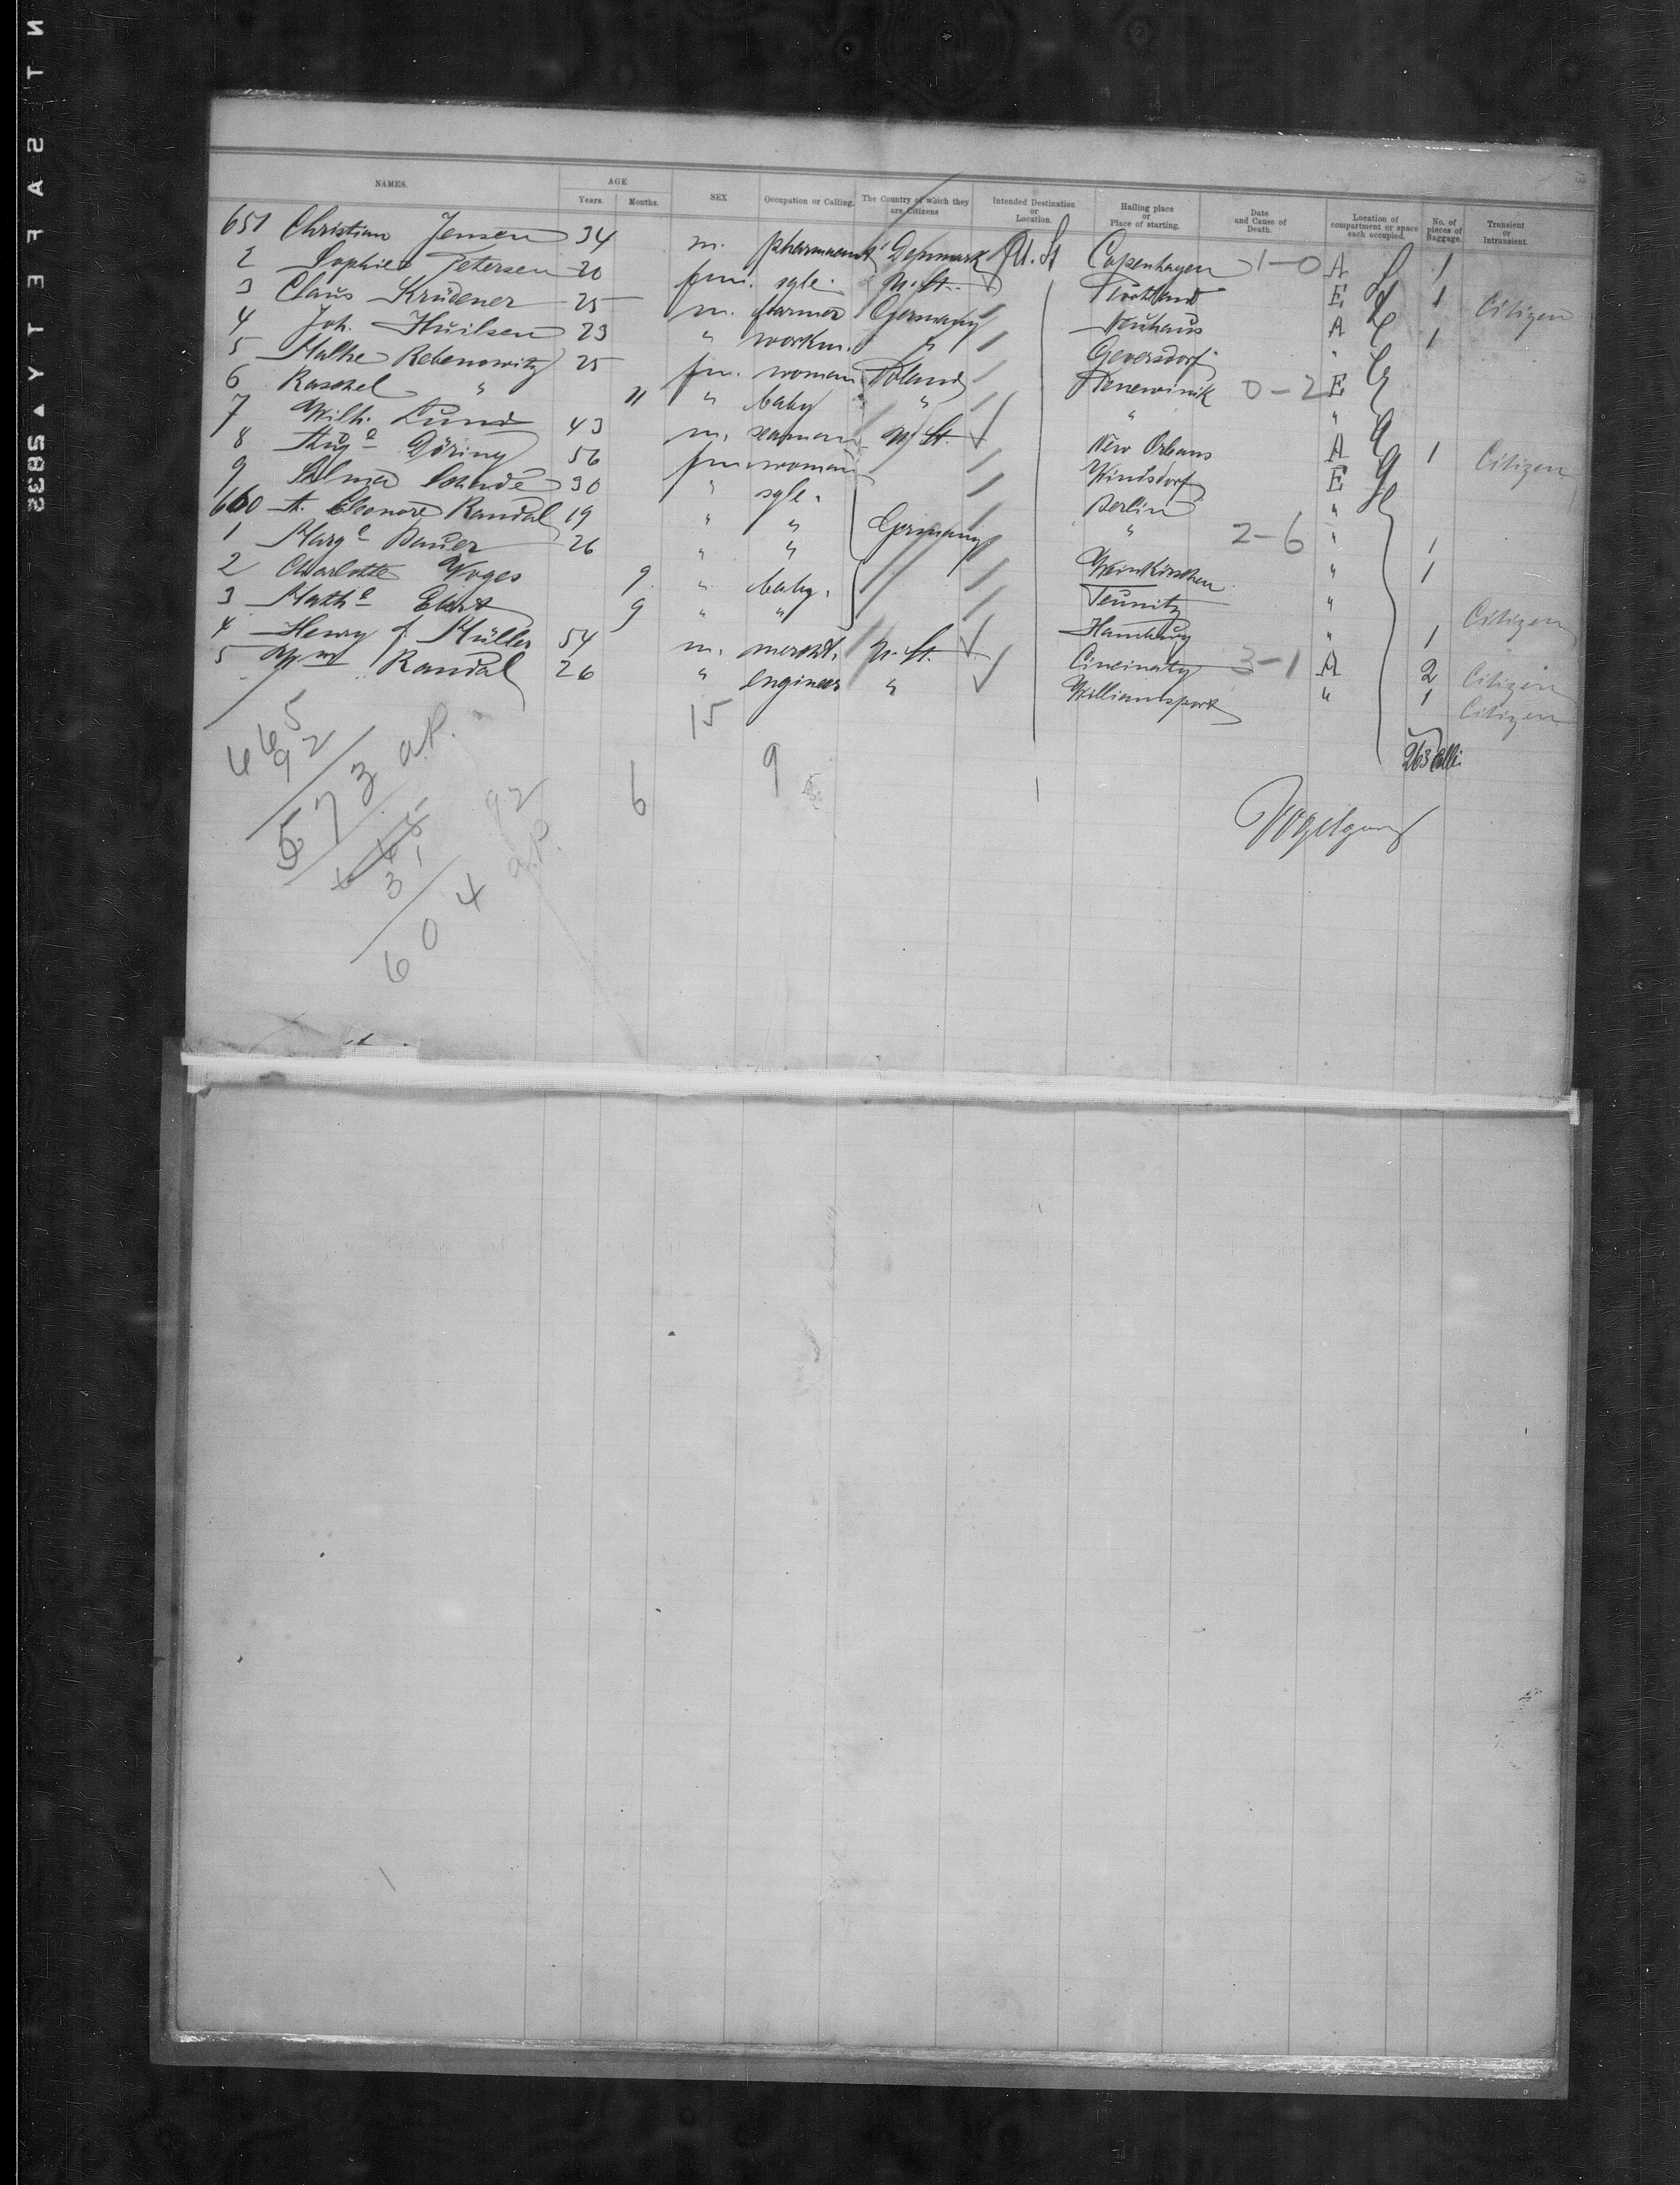 NAMES. AGE SEX Occupation or Calling. The Country of which they are Citizens Intended Destination or Location. Hailing place or Place of starting. Date and Cause of Death. Location of compartment or space each occupied. No. of pieces of Baggage. Transient or Intransient.
Years. Months.
651 Christian Jensen 34 m. Denmark U. St Copenhagen 1-0 A 1
2 Sophie Petersen 20 fm. sgle. U. St. Portland E 1 Citizen
3 Claus Krüdener 25 m. farmer Germany Neuhaus A 1
4 Joh. 23 " workm. " Geversdorf "
5 Malke Rebenowitz 25 fm. woman Poland 0-2 E
6 Raschel " 11 " baby " " "
7 Wilh. Lund 43 m. seaman U. St. New Orleans A 1 Citizen
8 Aug e Döring 56 fm. woman Windsdorf E
9 Selma 30 " sgle. Berlin "
660 A. Eleonore Randal 19 " " Germany " 2-6 " 1
1 Marg e Bauer 26 " " " 1
2 Charlotte Voges 9 " baby. "
3 Math e 9 " " Hamburg " 1 Citizen
4 Henry J. Müller 54 m. mercht. U. St. Cincinaty 3-1 A 2 Citizen
5 Wm Randal 26 " Engineer " Williamsport " 1 Citizen
15
665
92
573 a.P.
263 Colli
6 9
31
92
604 a.P.
Vogelgesang
SAFETY ▲ 5832